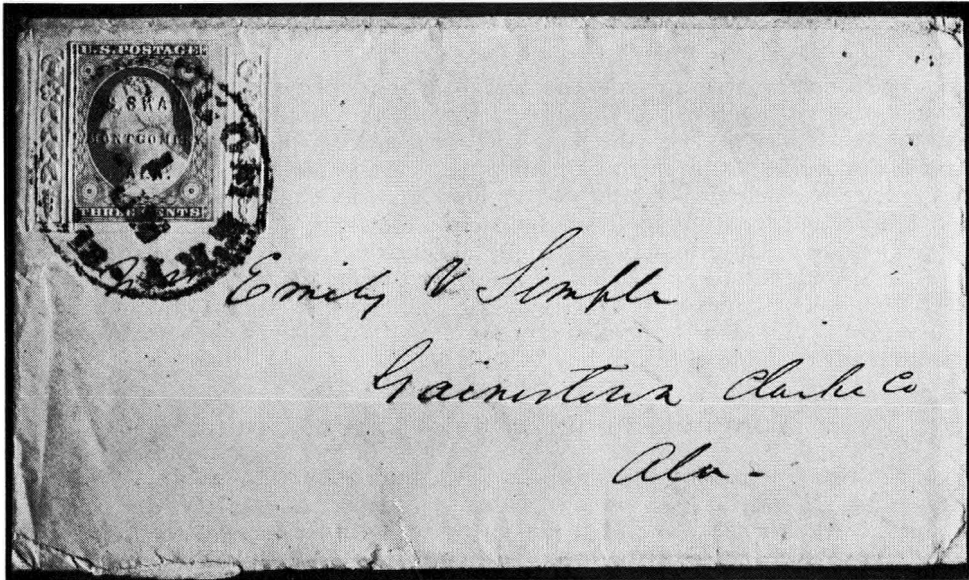 U.S. POSTAGE
SHAW
MONTGOMERY
ALA.
THREE CENTS
Emily V Semple
Gainestown Clarke Co
Ala -